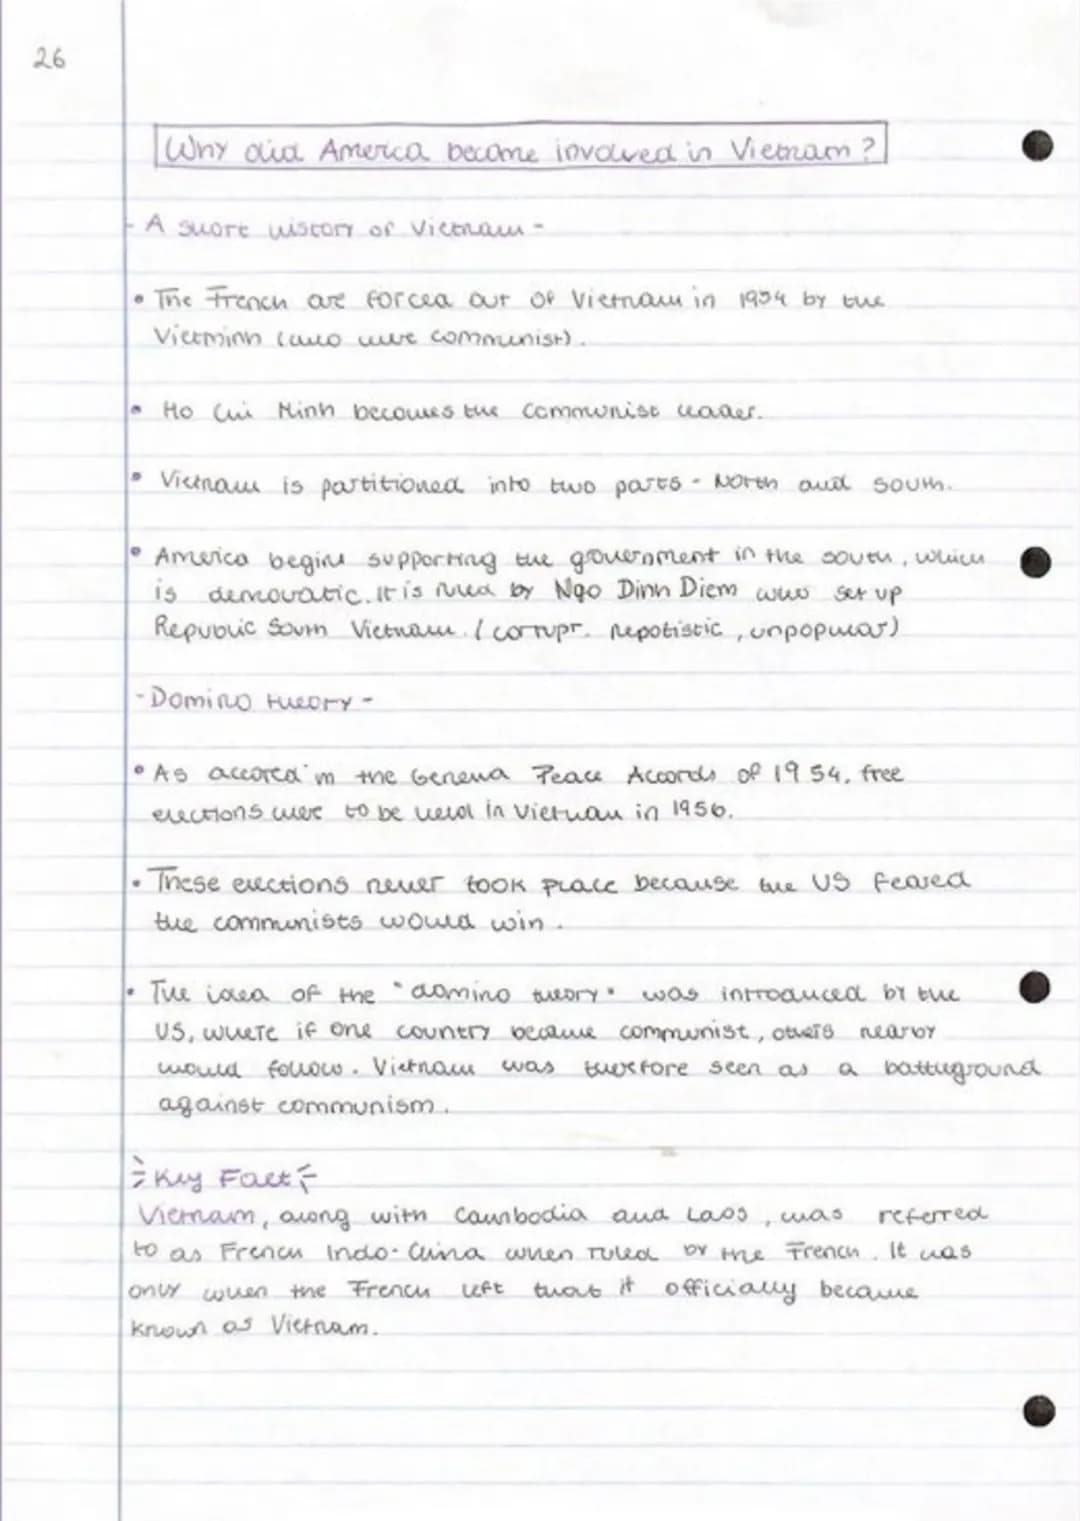 26
Why did America become involved in Vietnam?
- A short history of Vietnam -
• The French are forced out of Vietnam in 1954 by the
Vietminh (who were communist).
• Ho Chi Minh becomes the communist leader.
• Vietnam is partitioned into two parts - North and South.
• America begins supporting the government in the south, which
is democratic. It is ruled by Ngo Dinh Diem who set up
Republic South Vietnam. (corrupt. nepotistic, unpopular)
- Domino theory -
• As accored in the Geneva Peace Accords of 1954, free
elections were to be held in Vietnam in 1956.
• These elections never took place because the US feared
the communists would win.
• The idea of the "domino theory" was introduced by the
US, where if one country became communist, others nearby
would follow. Vietnam was therefore seen as a battleground
against communism.
Key Fact
Vietnam, along with Cambodia and Laos, was referred
to as French Indo-China when ruled by the French. It was
only when the French left that it officially became
known as Vietnam.